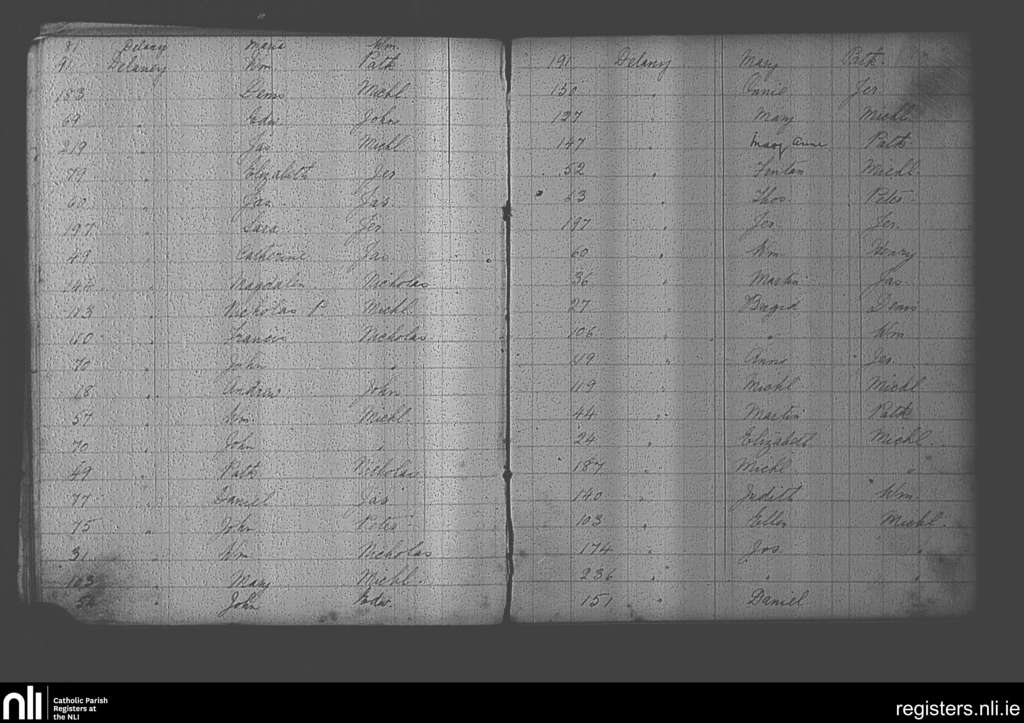 81 Delany Maria Wm
91 Delaney Wm Patk
183 " Denis Michl
69 " Edw John
219 " Jas Michl
79 " Elizabeth Jer
60 " Jas Jas
197 " Sara Jer
49 " Catherine Jas
144 " Magdalen Nicholas
113 " Nicholas P Michl
110 " Francis Nicholas
70 " John "
18 " Andrew John
57 " Wm Michl
70 " John "
49 " Patk Nicholas
77 " Daniel Jas
75 " John Peter
31 " Wm Nicholas
103 " Mary Michl
54 " John Edw.
191 Delaney Mary Patk.
150 " Annie Jer
127 " Mary Michl
147 " Mary Anne Patk
52 " Fintan Michl
23 " Thos Peter
197 " Jer Jer.
60 " Wm Henry
36 " Martin Jas
27 " Brigid Denis
106 " " Wm
49 " Anne Jas
119 " Michl Michl
44 " Martin Patk
24 " Elizabeth Michl
187 " Michl "
140 " Judith Wm
103 " Ellen Michl.
174 " Jos "
236 " " "
151 " Daniel
nli
Catholic Parish
Registers at
the NLI
registers.nli.ie